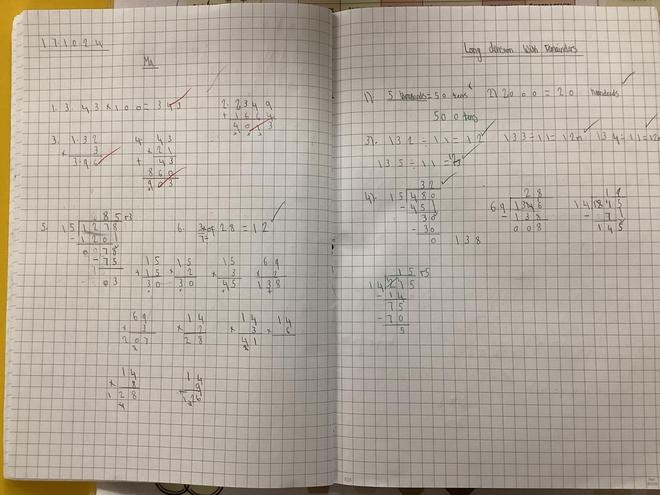 17.10.24
Ma
1. 3.43 × 100 = 343
2. 2349
+ 1664
4013
3. 1.32
× 3
3.96
4. 43
× 21
+ 43
860
903
685 r3
5. 15 1278
- 1201
0078
- 75
03
6. 3/7 of 28 = 12
15
+ 15
30
15
× 2
30
15
× 3
45
69
× 2
138
69
× 3
207
14
× 2
28
14
× 3
41
14
× 6
14
× 8
128
14
9
126
Long division With Remainders
1) 5 thousands = 50 tens
500 tens
2) 2000 = 20 hundreds
3). 132 ÷ 11 = 12
133 ÷ 11 = 12r1
134 ÷ 11 = 12r
135 ÷ 11 = 12r
32
4) 15 480
- 451
30
- 30
0
138
28
69 1346
- 138
008
14
- 71
145
15 r5
14 215
- 14
75
- 70
5